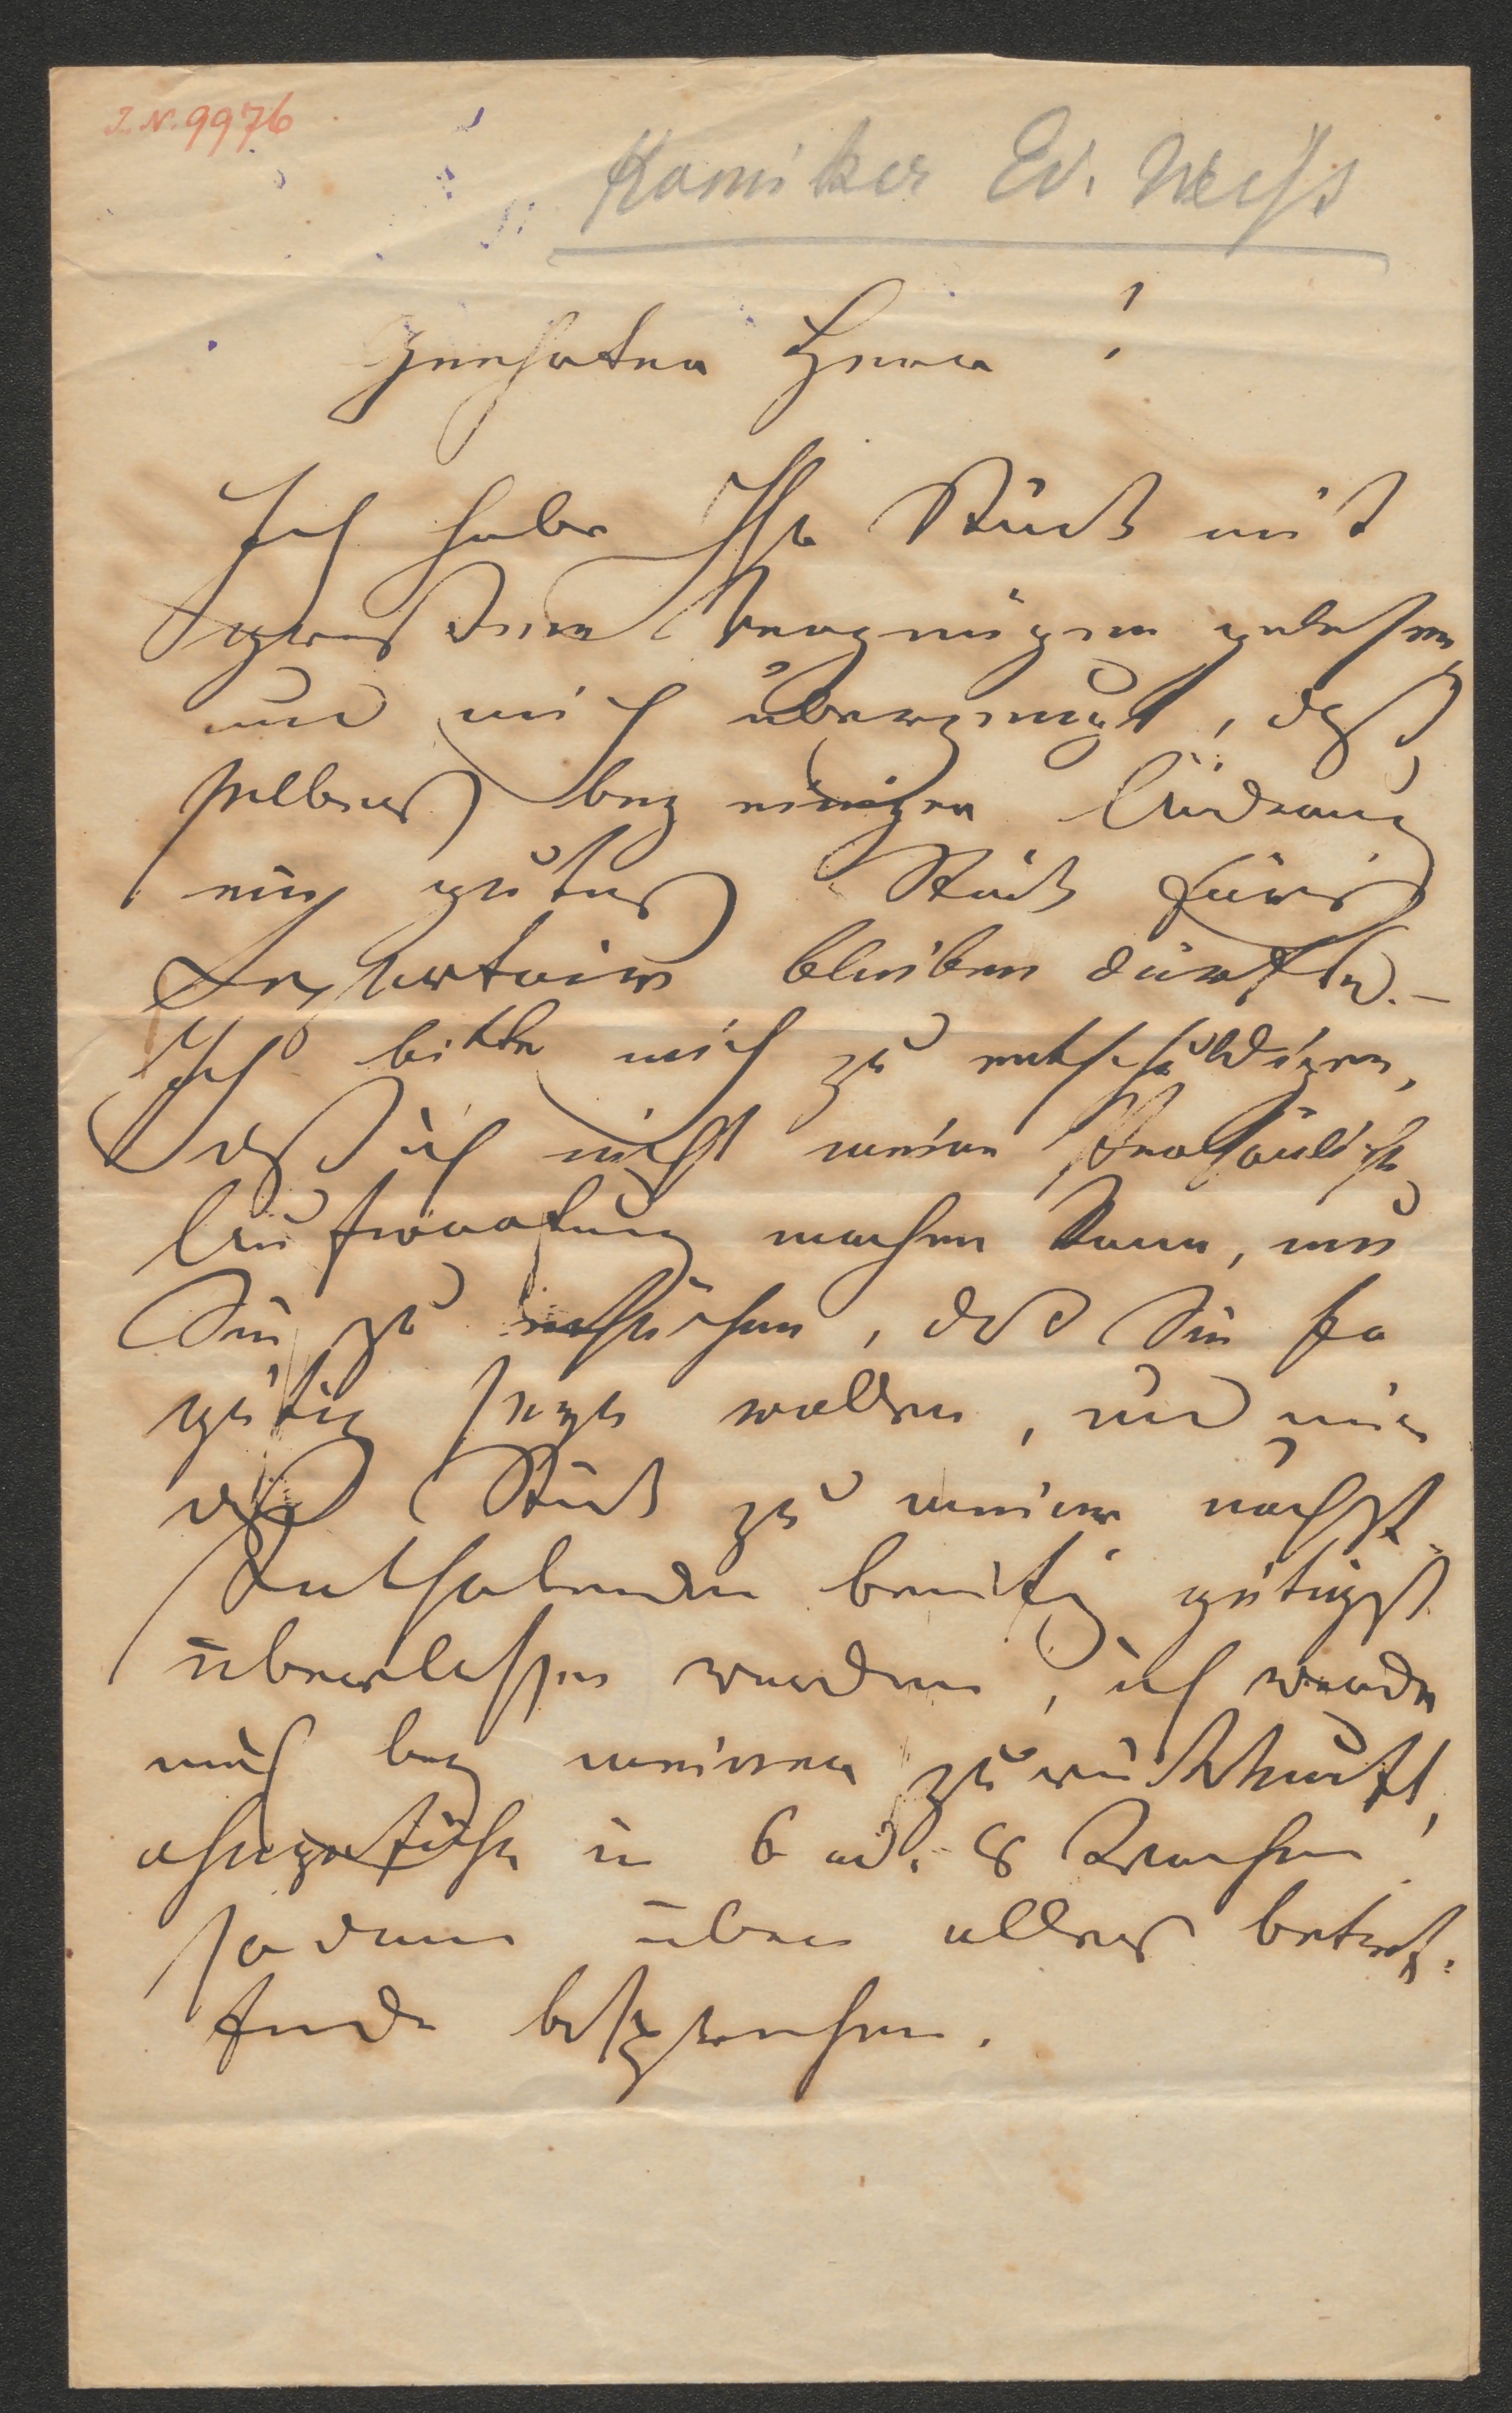 I. N. 9976
Komiker Ed. Weiß
Geehrter Herr!
Ich habe Ihr Stück mit
großem Vergnügen gelesen,
und mich überzeugt, daß
selbes bey einiger Änderung
ein gutes Stück fürs
Repertoire bleiben dürfte. –
Ich bitte mich zu entschuldigen,
daß ich nicht meine persönliche
Aufwartung machen kann, um
Sie zu ersuchen, daß Sie so
gütig seyn wollen, und mir
das Stück zu meiner nächst
gütigst
überlassen werden, ich werde
mich bey meiner Zurückkunft,
ohngefähr in 6 od. 8 Wochen
sodann über alles betref-
fende besprechen.